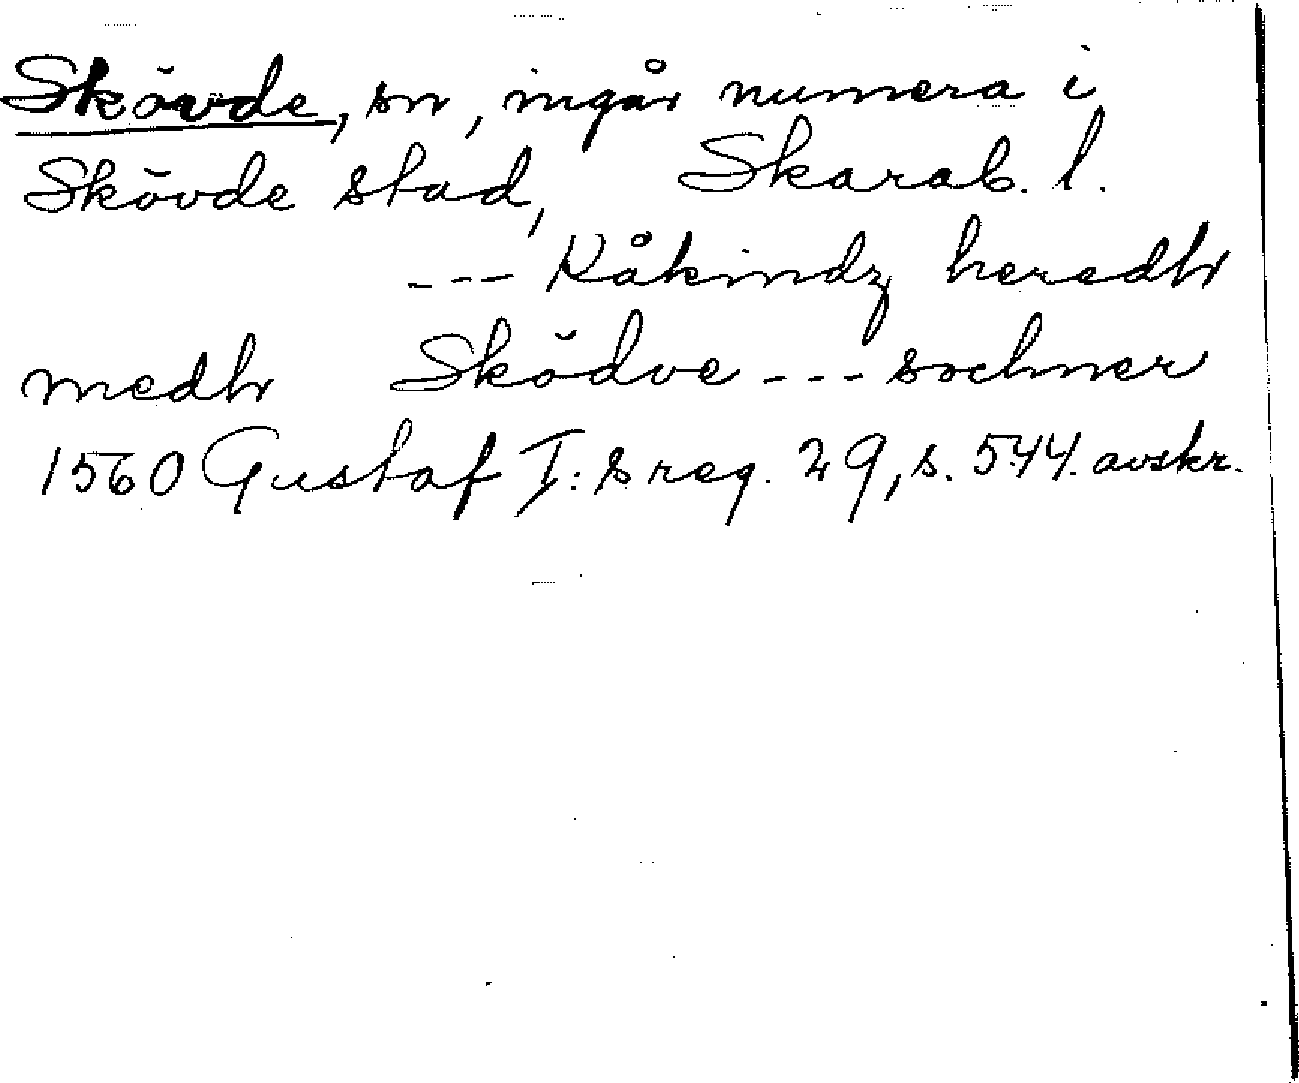 Skövde, sn, ingår numera i
Skövde stad, Skarab. l.
--- Kåkindz heredh
medh Sködve --- sochner
1560 Gustaf I:s reg. 29, s. 544. avskr.